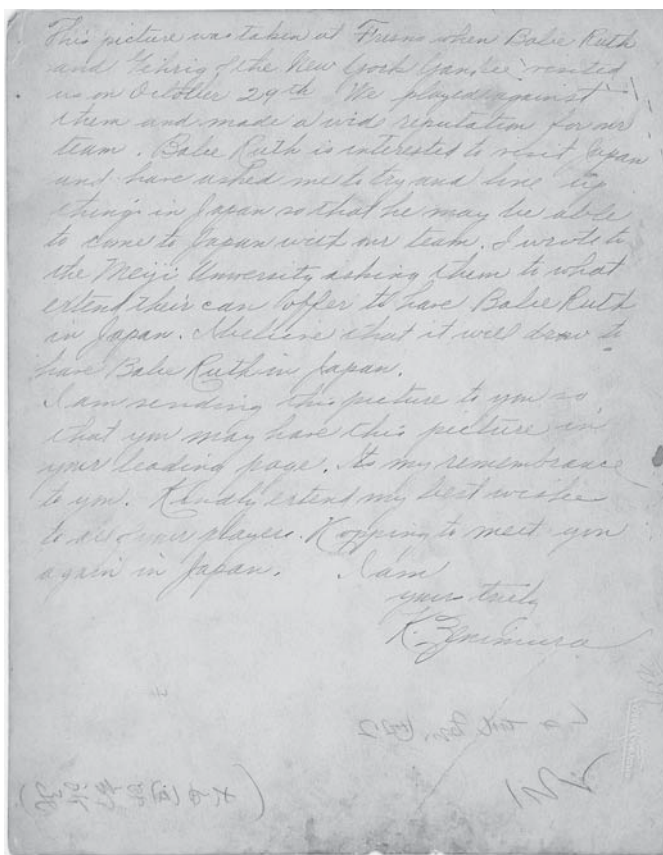 This picture was taken at Fresno when Babe Ruth
and Gehrig of the New York Yankee visited
us on October 29th We played against
them and made a wid reputation for our
team. Babe Ruth is interested to visit Japan
and have asked me to try and line up
things in Japan so that he may be able
to come to Japan with our team. I wrote to
the Meiji University asking them to what
extend their can offer to have Babe Ruth
in Japan. I believe that it will draw to
have Babe Ruth in Japan.
I am sending this picture to you so
that you may have this picture in
your leading page. Its my remembrance
to you. Kindly extend my best wishes
to all your players. Hopping to meet you
again in Japan. I am
yours truly
K. Zenimura